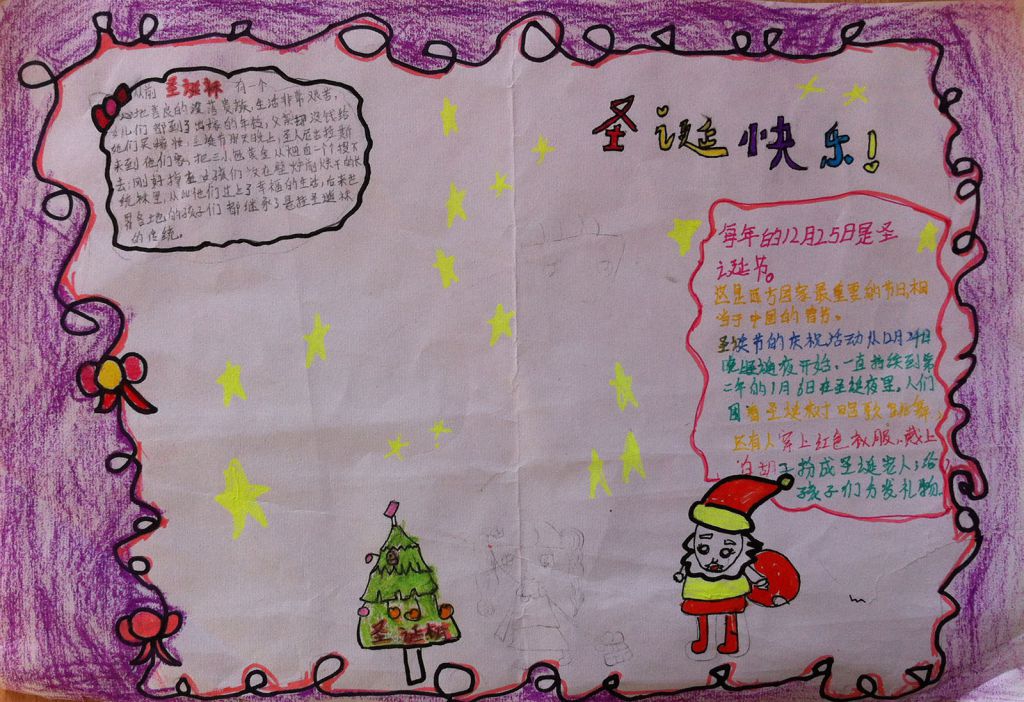 从前 圣诞袜 有一个
心地善良的没落贵族,生活非常艰苦,
女儿们都到了出嫁的年龄,父亲却没钱给
她们买嫁妆,三
来到他们家,把三小
去,刚好掉在
统袜里,从此他们过上了幸福的生活,后来世
界各地的孩子们都继承了悬挂圣诞袜
的传统。
圣诞快乐!
每年的12月25日是圣
诞节。
这是西方国家最重要的节日,相
当于中国的春节。
圣诞节的庆祝活动从12月24日
夜开始,一直持续到第
二年的1月6日在圣诞夜里,人们
围着圣诞树唱歌跳舞,
还有人穿上红色衣服,戴上
白胡子扮成圣诞老人,给
孩子们分发礼物
圣诞树